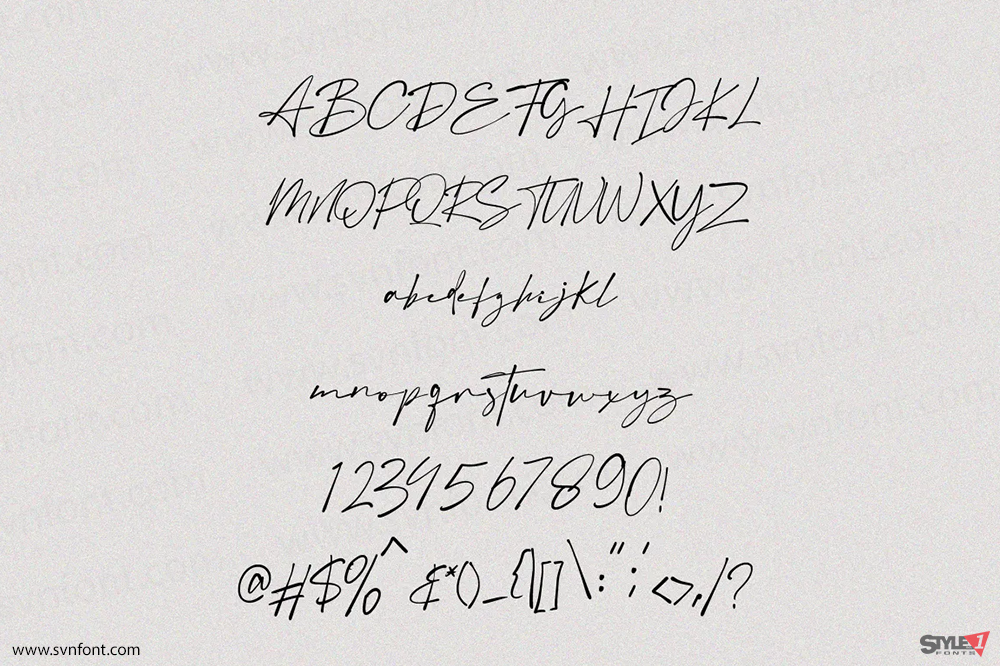 ABCDEFGHIJKL
MNOPQRSTUVWXYZ
abcdefghijkl
mnopqrstuvwxyz
1234567890!
@#$%^&*()_{}[]\:";'<>,/?
www.svnfont.com
STYLE 1
FONTS